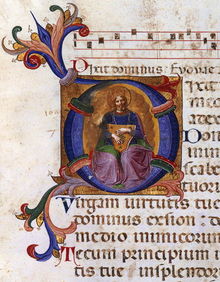 ixit dominus Evovae
ixit
me
tuoru
Virgam virtutis tue
dominus exsion
medio inimicorum
Tecum principium
tis tue insplendor